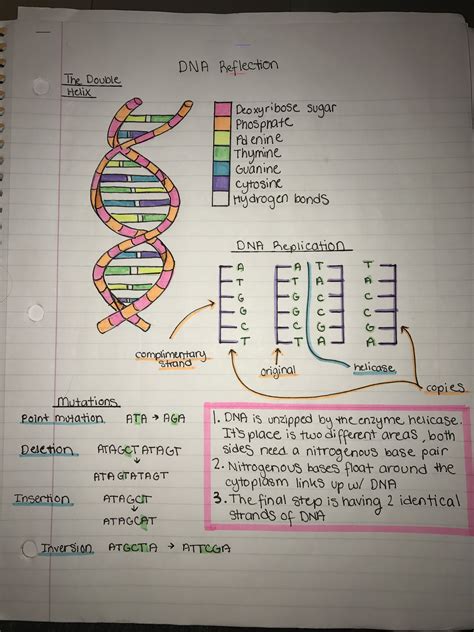 DNA Reflection
The Double
Helix
Deoxyribose sugar
Phosphate
Adenine
Thymine
Guanine
Cytosine
Hydrogen bonds
DNA Replication
A A T T
T T A A
G G C C
G G C C
C C G G
T T A A
complimentary
strand
original
helicase
copies
Mutations
Point mutation ATA → AGA
Deletion ATAGCTATAGT
↓
ATAGTATAGT
Insertion ATAGCT
↓
ATAGCAT
Inversion ATGCTTA → ATTCGA
1. DNA is unzipped by the enzyme helicase.
It's place is two different areas, both
sides need a nitrogenous base pair
2. Nitrogenous bases float around the
cytoplasm links up w/ DNA
3. The final step is having 2 identical
strands of DNA